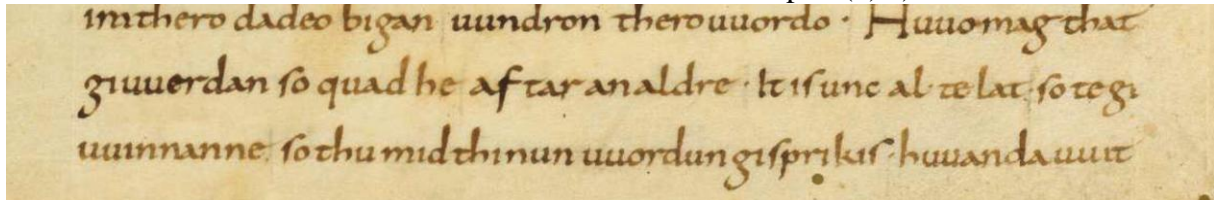 imthero dadeo bigan uundron therouuordo · Huuomag that
giuuerdan so quad he aftar an aldre · It is unc al · te lat · so te gi
uuinnanne · so thu mid thinun uuordun gisprikis · huuanda uuit